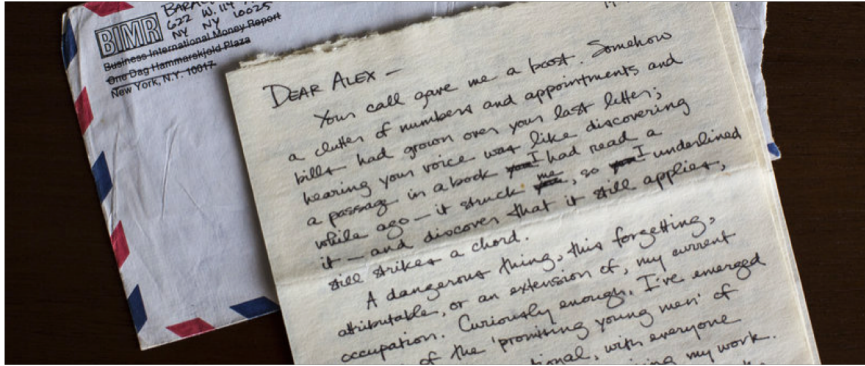 BARA
622 W. 114
NY NY 10025
BIMR
Business International Money Report
One Dag Hammarskjold Plaza
New York, N.Y. 10017
DEAR ALEX —
Your call gave me a boost. Somehow
a clutter of numbers and appointments and
bills had grown over your last letter;
hearing your voice was like discovering
a passage in a book you I had read a
while ago — it struck me, so you I underlined
it — and discover that it still applies,
still strikes a chord.
A dangerous thing, this forgetting,
attributable, or an extension of, my current
occupation. Curiously enough, I've emerged
of the 'promising young men' of
tional, with everyone
my work.